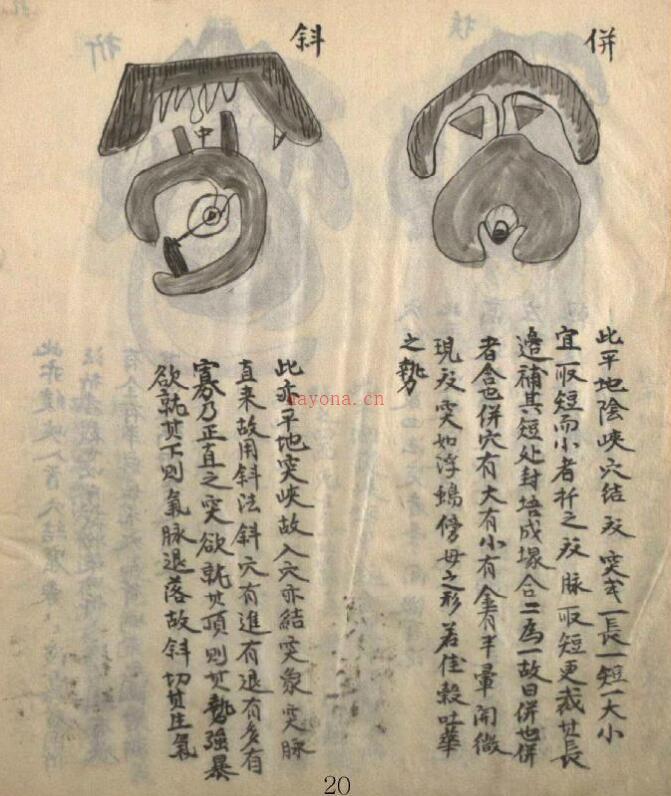 併
此平地陰峽穴結双突或一長一短一大小
宜取短而小者扦之双脉取短更裁其長
邊補其短处封培成塚合二為一故曰併也併
者合也併穴有大有小有全有半暈開微
現双突如浮蝎傍母之形若佳穀吐華
之势
斜
此亦平地突峽故入穴亦結突象突脉
直来故用斜法斜穴有進有退有多有
寡乃正直之突欲就其頂則其勢強暴
欲就其下則氣脉退落故斜切其生氣
中
nayona.cn
20